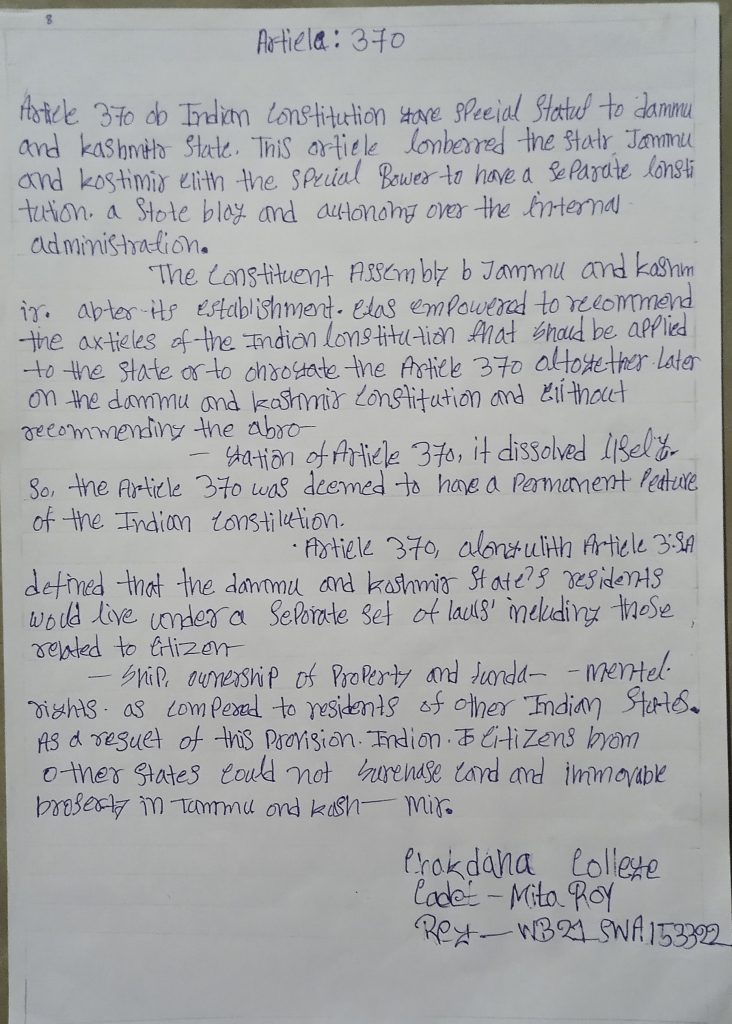 8
Article: 370
Article 370 ob Indian Constitution gave special status to Jammu
and kashmir state. This article conberred the state Jammu
and kashmir with the special Power to have a separate consti
tution. a state blag and autonomy over the internal
administration.
The Constituent Assembly b Jammu and kashm
ir. abter its establishment. was empowered to recommend
the articles of the Indian Constitution that shoud be applied
to the state or to abrogate the Article 370 altogether. Later
on the Jammu and kashmir Constitution and without
recommending the abro-
- gation of Article 370, it dissolved itself.
So, the Article 370 was deemed to have a permanent Feature
of the Indian constitution.
Article 370, along with Article 35A
defined that the Jammu and kashmir state's residents
would live under a separate set of laws' including those
related to citizen-
- ship, ownership of Property and funda- - mentel.
rights. as compered to residents of other Indian States.
As a resuet of this provision. Indian. citizens brom
other states could not purchase land and immovable
property in Jammu and kash- mir.
College
Cadet - Mita Roy
Reg - WB21SWA153322